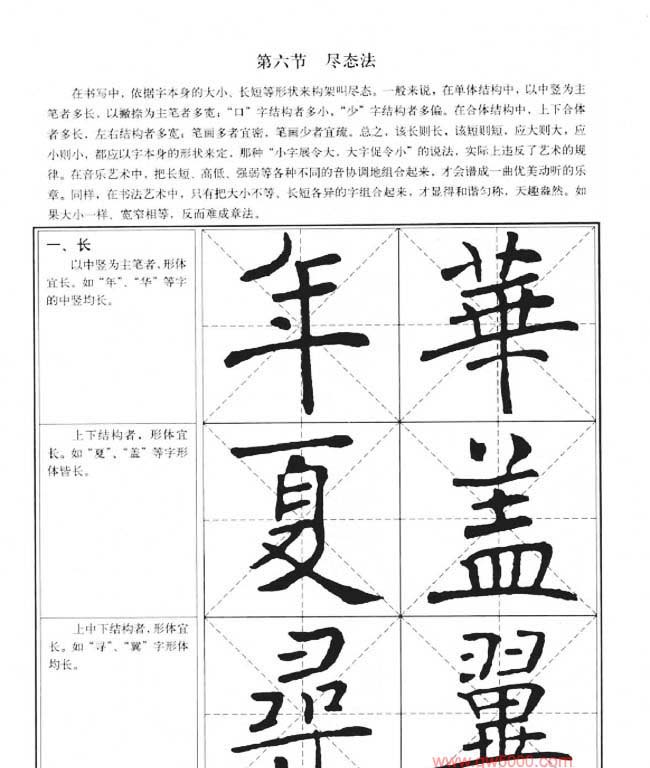 第六节 尽态法
在书写中，依据字本身的大小、长短等形状来构架叫尽态。一般来说，在单体结构中，以中竖为主
笔者多长，以撇捺为主笔者多宽；“口”字结构者多小，“少”字结构者多偏。在合体结构中，上下合体
者多长，左右结构者多宽；笔画多者宜密，笔画少者宜疏。总之，该长则长，该短则短，应大则大，应
小则小，都应以字本身的形状来定，那种“小字展令大，大字促令小”的说法，实际上违反了艺术的规
律。在音乐艺术中，把长短、高低、强弱等各种不同的音协调地组合起来，才会谱成一曲优美动听的乐
章。同样，在书法艺术中，只有把大小不等、长短各异的字组合起来，才显得和谐匀称，天趣盎然。如
果大小一样、宽窄相等，反而难成章法。
一、长
以中竖为主笔者，形体
宜长。如“年”、“华”等字
的中竖均长。
年 華
上下结构者，形体宜
长。如“夏”、“盖”等字形
体皆长。
夏 盖
上中下结构者，形体宜
长。如“寻”、“翼”字形体
均长。
翼